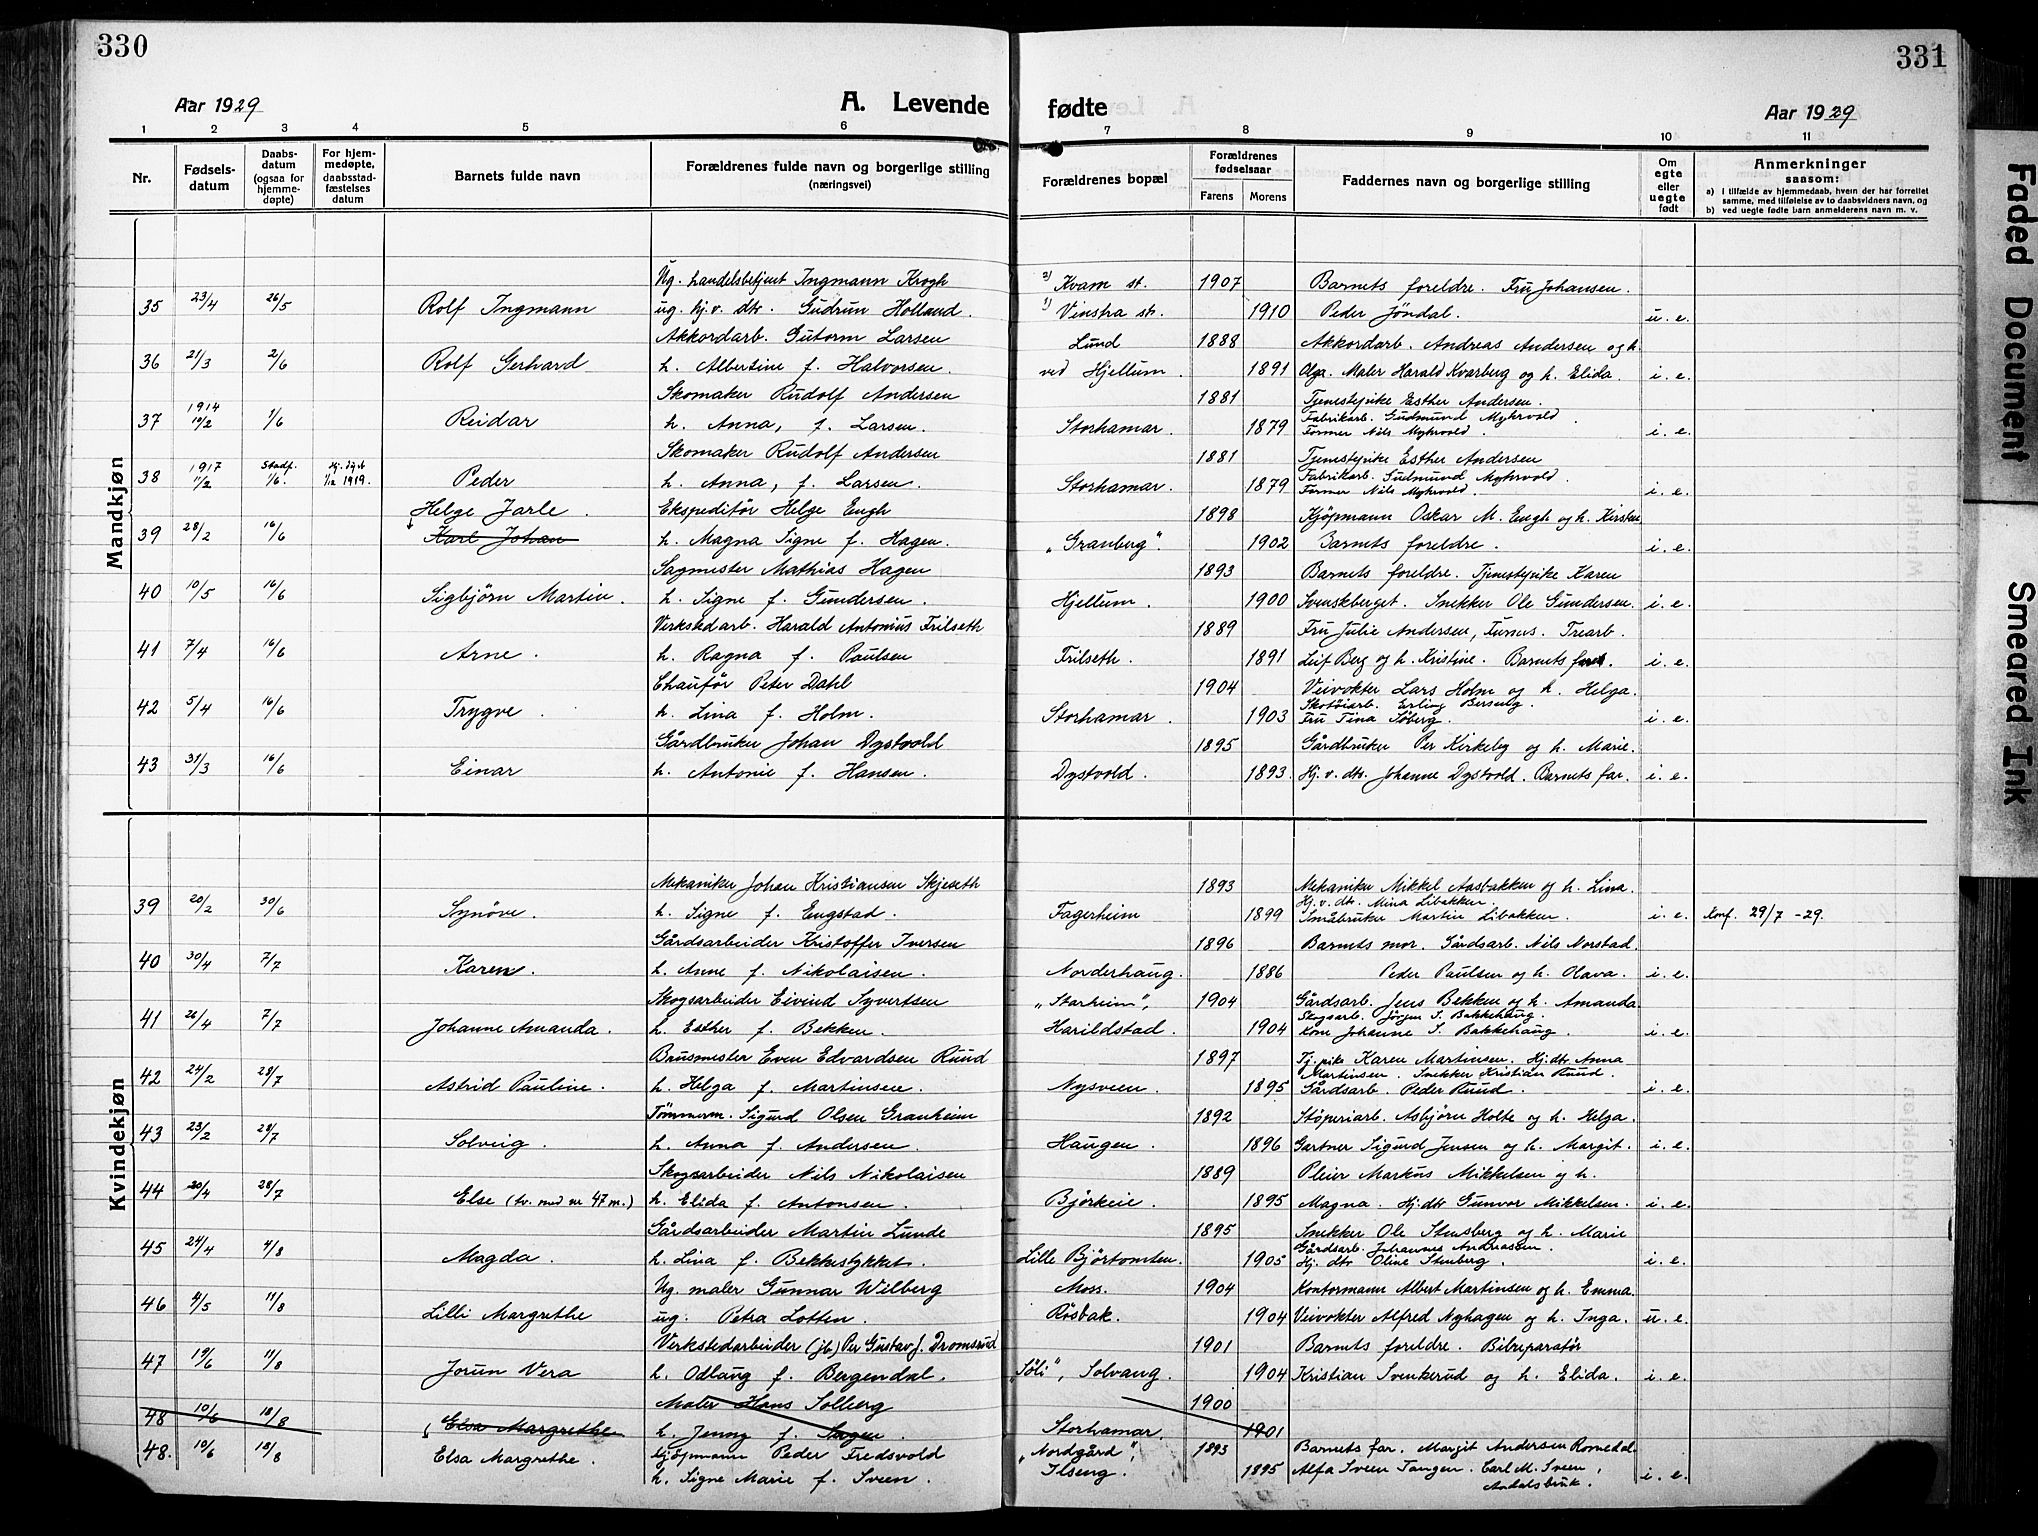 330
331
Aar 1929
A. Levende
fødte
Aar 1929
1 2 3 4 5 6 7 8 9 10 11
Nr.
Fødsels-
datum
Daabs-
datum
(ogsaa for
hjemme-
døpte)
For hjem-
medøpte,
daabsstad-
fæstelses
datum
Barnets fulde navn
Forældrenes fulde navn og borgerlige stilling
(næringsvei)
Forældrenes bopæl
Forældrenes
fødselsaar
Farens Morens
Faddernes navn og borgerlige stilling
Om
egte
eller
uegte
født
Anmerkninger
saasom:
a) i tilfælde av hjemmedaab, hvem der har forrettet
samme, med tilføielse av to daabsvidners navn, og
b) ved uegte fødte barn anmelderens navn m. v.
Mandkjøn
Ug. handelsbetjent Ingmann Krogh 2) Kvam st. 1907 Barnets foreldre. Fru Johansen.
35 23/4 26/5 Rolf Ingmann ug. hj.v. dtr. Gudrun Holland. 1) Vinstra st. 1910 Peder Jöndal. u. e.
Akkordarb. Gutorm Larsen Lund 1888 Akkordarb. Andreas Andersen og h.
36 21/3 2/6 Rolf Gerhard h. Albertine f. Halvorsen. ved Hjellum. 1891 Olga. Maler Harald Kvarberg og h. Elida. i. e.
Skomaker Rudolf Andersen 1881 Tjenestepike Esther Andersen.
37 1914 10/2 1/6 Reidar h. Anna, f. Larsen. Storhamar. 1879 Fabrikarb. Gudmund Myhrvold. i. e.
Former Nils Myhrvold.
Skomaker Rudolf Andersen 1881 Tjenestepike Esther Andersen
38 1917 11/2 Stadf. 1/6. hj. døpt 1/12 1919. Peder h. Anna, f. Larsen. Storhamar. 1879 Fabrikarb. Gudmund Myhrvold. i. e.
Former Nils Myhrvold.
Helge Jarle. Ekspeditör Helge Engh 1898 Kjöpmann Oskar M. Engh og h. Kirsten
39 28/2 16/6 Karl Johan h. Magna Signe f. Hagen. "Granberg". 1902 Barnets foreldre. i. e.
Sagmester Mathias Hagen 1893 Barnets foreldre. Tjenestepike Karen
40 10/5 16/6 Sigbjörn Martin. h. Signe f. Gundersen. Hjellum. 1900 Svenskberget. Snekker Ole Gundersen. i. e.
Verkstedarb. Harald Antonius Frilseth 1889 Fru Julie Andersen, Furnes. Trearb.
41 7/4 16/6 Arne. h. Ragna f. Paulsen Frilseth. 1891 Leif Berg og h. Kristine. Barnets far. i. e.
Chauför Peter Dahl 1904 Veivokter Lars Holm og h. Helga.
42 5/4 16/6 Trygve. h. Lina f. Holm. Storhamar. 1903 Skotöiarb. Erling Berseng. i. e.
Fru Tina Söberg.
Gårdbruker Johan Dystvold 1895 Gårdbruker Per Kirkeby og h. Marie.
43 31/3 16/6 Einar h. Antonie f. Hansen. Dystvold. 1893. Hj. v. dtr. Johanne Dystvold. Barnets far. i. e.
Kvindekjøn
Mekaniker Johan Kristiansen Skjeseth 1893 Mekaniker Mikkel Aasbakken og h. Lina.
39 20/2 30/6 Synöve. h. Signe f. Engstad. Fagerheim 1899 Hj. v. dtr. Mina Libakken. i. e. Konf. 29/7 -29.
Småbruker Martin Libakken.
Gårdsarbeider Kristoffer Iversen 1896 Barnets mor. Gårdsarb. Nils Norstad.
40 30/4 7/7 Karen. h. Anne f. Nikolaisen. Norderhaug. 1886 Peder Paulsen og h. Olava. i. e.
Skogsarbeider Eivind Syvertsen "Starheim", 1904 Gårdsarb. Jens Bekken og h. Amanda.
41 26/4 7/7 Johanne Amanda. h. Esther f. Bekken. Harildstad. 1904 Skogsarb. Jörgen S. Bakkehaug. i. e.
Kone Johanne S. Bakkehaug.
Brusmester Even Edvardsen Ruud 1897 Tj.pike Karen Martinsen. Hj.dtr. Anna
42 24/2 28/7 Astrid Pauline. h. Helga f. Martinsen. Nysveen. 1895 Martinsen. Snekker Kristian Ruud. i. e.
Gårdsarb. Peder Ruud.
Tömmerm. Sigurd Olsen Granheim 1892 Stöperiarb. Asbjörn Holte og h. Helga.
43 23/2 28/7 Solveig. h. Anna f. Andersen. Haugen. 1896 Gartner Sigurd Jensen og h. Margit. i. e.
Skogsarbeider Nils Nikolaisen 1889 Pleier Markus Mikkelsen og h.
44 20/4 28/7 Else (tv. med nr 47 m.) h. Elida f. Antonsen. Björkeie. 1895 Magna. Hj.dtr Gunvor Mikkelsen. i. e.
Gårdsarbeider Martin Lunde 1895 Snekker Ole Stensberg og h. Marie
45 24/4 4/8 Magda. h. Lina f. Bekkestykket. Lille Björtomten. 1905 Gårdsarb. Johannes Andreassen. i. e.
Hj. dtr Oline Stenberg.
Ug. maler Gunnar Wilberg Moss. 1904 Kontormann Albert Martinsen og h. Emma.
46 2/5 11/8 Lilli Margrethe ug. Petra Lotten. Rösbak. 1904 Veivokter Alfred Nyhagen og h. Inga. u. e.
Verkstedarbeider (jb) Per Gustav J. Dromsrud 1901 Barnets foreldre. Bilreparatör
47 19/6 11/8 Jorun Vera h. Odlaug f. Bergendal. "Söli", Solvang. 1904 Kristian Svenkerud og h. Elida. i. e.
Maler Hans Solberg 1900
48 10/6 18/8 Elsa Margrethe h. Jenny f. Hagen. Storhamar. 1901
48. 10/6 18/8 Elsa Margrethe. Kjöpmann Peder Fredsvold "Nordgård", 1893 Barnets far. Margit Andersen Romedal
h. Signe Marie f. Sveen. Ilseng. 1895 Alfa Sveen Tangen. Carl M. Sveen, i. e.
Andalsbruk.
Faded Document
Smeared Ink